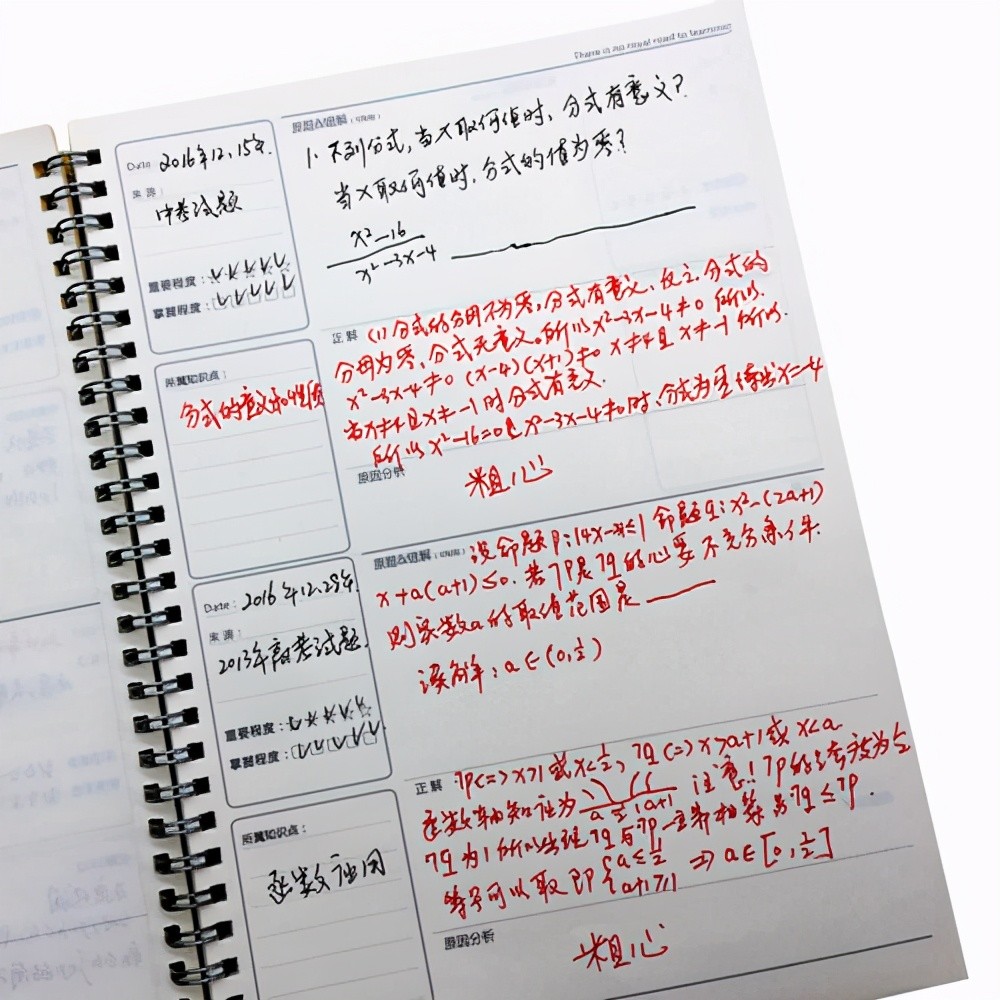 There is no royal road to learning
原题&错解(可贴)
1. 下列分式，当x取何值时，分式有意义？
当x取何值时，分式的值为零？
x²-16
x²-3x-4
Date 2016年12.15年.
来源：
中考试题
重要程度：
掌握程度：
正解 (1)分式的分母不为零，分式有意义，反之分式的
分母为零，分式无意义。所以x²-3x-4≠0 所以
x²-3x-4≠0 (x-4)(x+1)≠0 x≠4且x≠-1 所以.
当x≠4且x≠-1时分式有意义.
所以x²-16=0且x²-3x-4≠0时，分式为零 得出x=-4
所属知识点：
分式的意义和性质
原因分析
粗心
原题&错解(可贴) 设命题P：|4x-3|≤1 命题q：x²-(2a+1)
x+a(a+1)≤0. 若⌝P是⌝q的必要不充分条件.
则实数a的取值范围是
误解：a∈(0,½)
Date：2016年12.29年.
来源：
2013年高考试题.
重要程度：
掌握程度：
正解 ⌝P<=>x>1或x<½，⌝q<=>x>a+1或x<a
a ½ 1 a+1 注意！⌝P的
⌝q为1所以
等号可以取 即{a≤½ a+1≥1 ⇒ a∈[0,½]
所属知识点：
原因分析
粗心